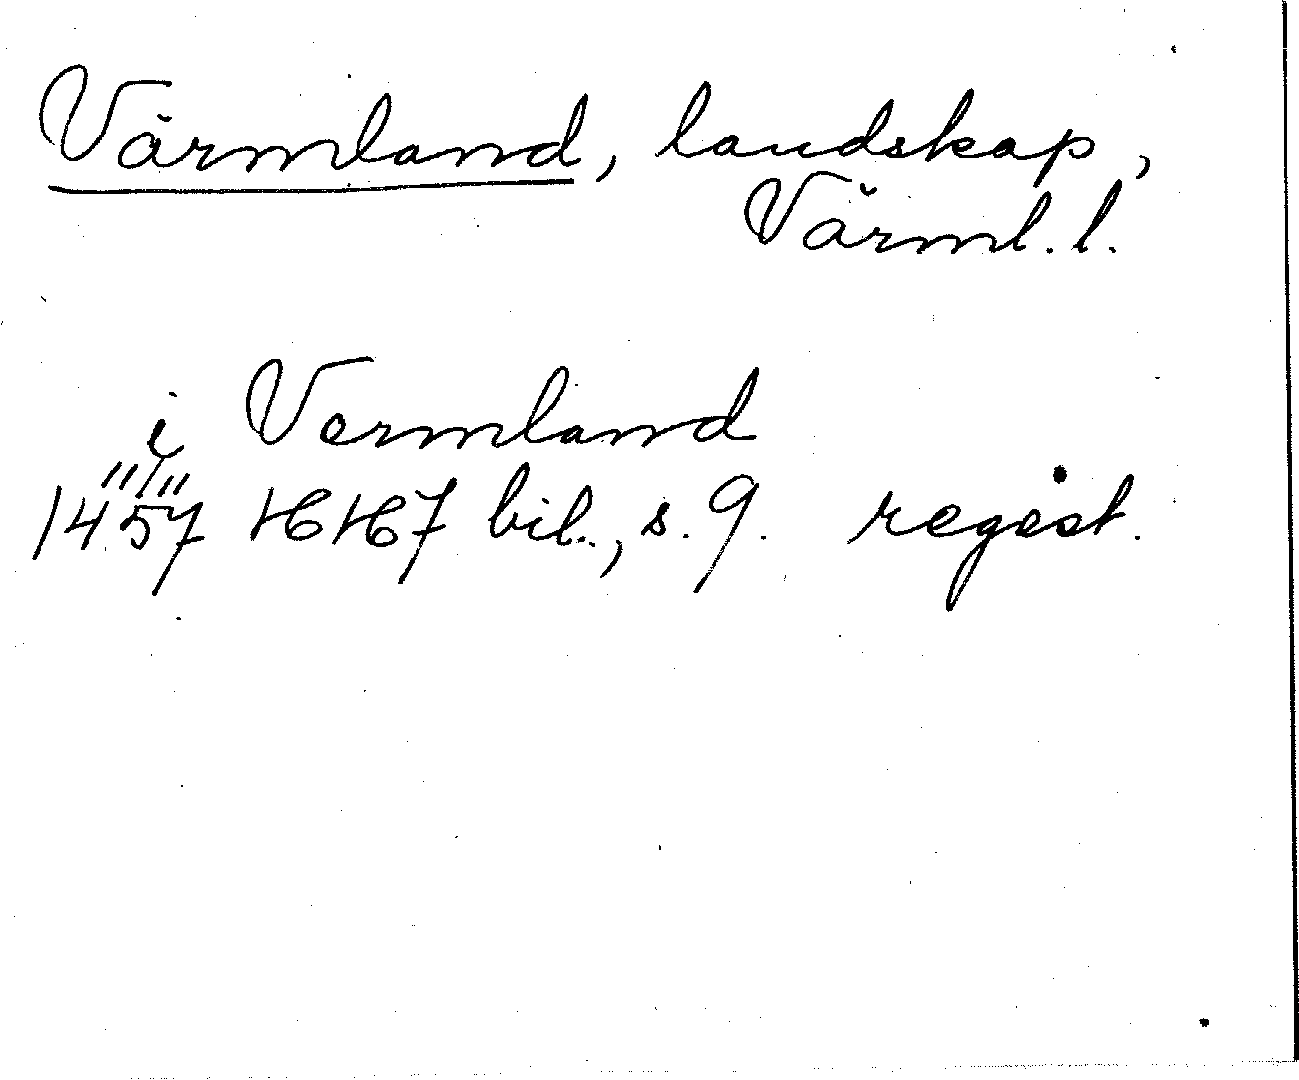 Värmland, landskap,
Värml. l.
i Vermland
1457 11/11 HH7 bil., s. 9. regest.